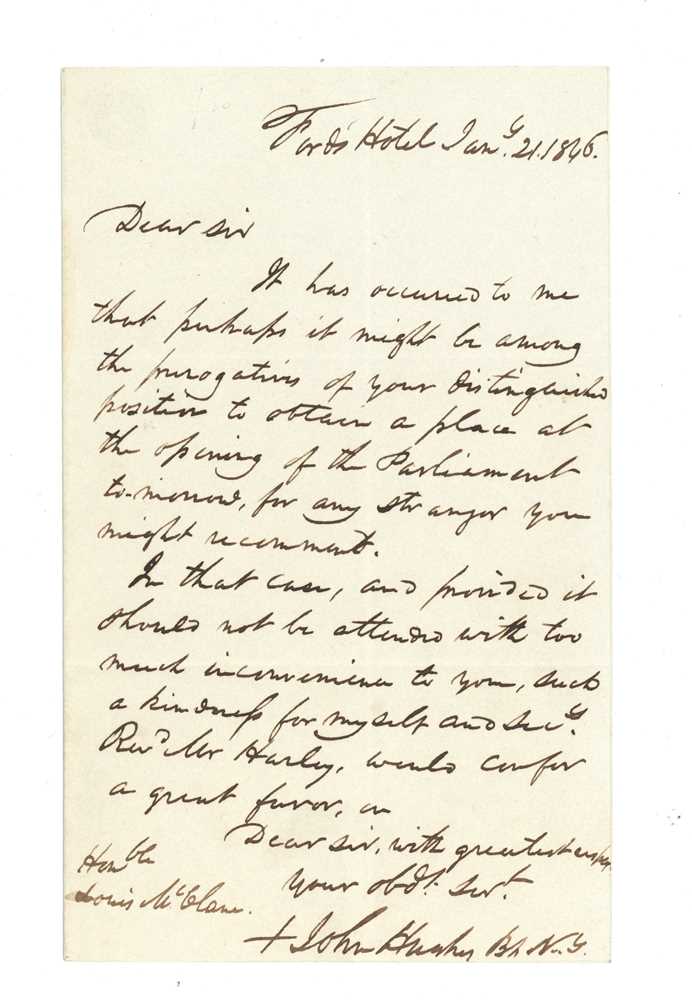 Ford's Hotel Jany. 21. 1846.
Dear sir
It has occured to me
that perhaps it might be among
the prerogatives of your distinguished
position to obtain a place at
the opening of the Parliament
to-morrow, for any stranger you
might recomment.
In that case, and provided it
should not be attended with too
much inconvenience to you, such
a kindness for myself and Secy.
Revd Mr Harley, would confer
a great favor, on
Dear sir, with greatest respect
your obdt. servt.
Honble
Louis McClane.
+ John Hughes Bp N.Y.